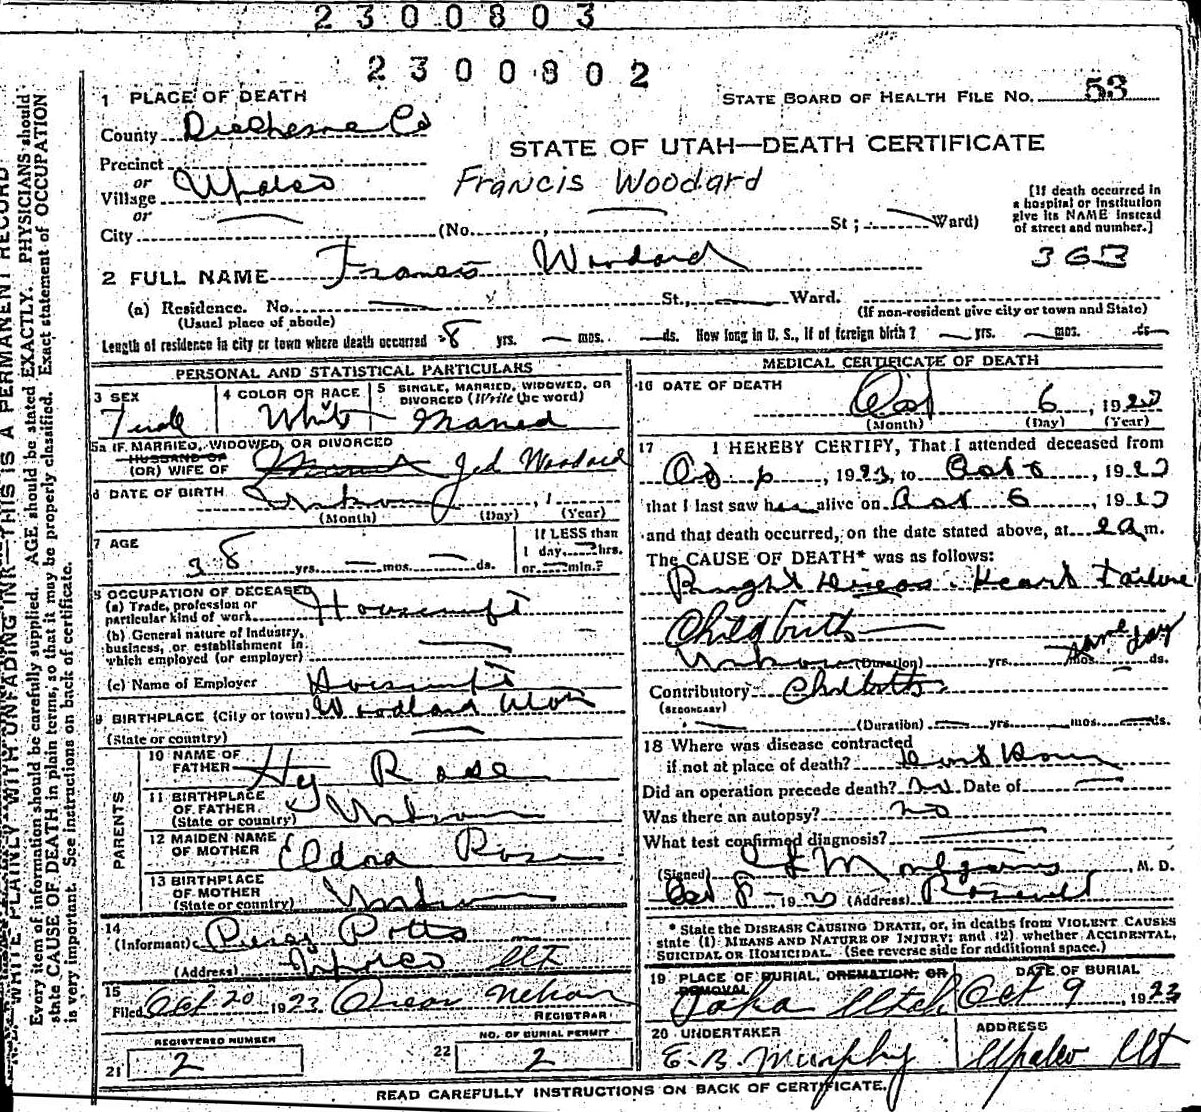 2300803
2300802
1 PLACE OF DEATH
STATE BOARD OF HEALTH FILE No. 53
County Duchesne Co
STATE OF UTAH—DEATH CERTIFICATE
Precinct
or
Village Upalco
Francis Woodard
or
City (No. , St ; Ward)
[If death occurred in
a hospital or institution
give its NAME instead
of street and number.]
2 FULL NAME Francis Woodard
363
(a) Residence. No. St., Ward.
(Usual place of abode)
(If non-resident give city or town and State)
Length of residence in city or town where death occurred 8 yrs. — mos. — ds. How long in U. S., if of foreign birth? — yrs. — mos. — ds.
PERSONAL AND STATISTICAL PARTICULARS
3 SEX
4 COLOR OR RACE
5 SINGLE, MARRIED, WIDOWED, OR
DIVORCED (Write the word)
White
5a IF MARRIED, WIDOWED, OR DIVORCED
HUSBAND OF
(OR) WIFE OF Jed Woodard
6 DATE OF BIRTH Unknown , 1
(Month) (Day) (Year)
7 AGE
38 yrs. — mos. — ds.
If LESS than
1 day, hrs.
or min.?
8 OCCUPATION OF DECEASED
(a) Trade, profession or
particular kind of work Housewife
(b) General nature of industry,
business, or establishment in
which employed (or employer)
(c) Name of Employer Housewife
9 BIRTHPLACE (City or town) Woodland Utah
(State or country)
PARENTS
10 NAME OF
FATHER Hy Rose
11 BIRTHPLACE
OF FATHER
(State or country) Unknown
12 MAIDEN NAME
OF MOTHER Eldora Rose
13 BIRTHPLACE
OF MOTHER
(State or country) Unknown
14
(Informant) Percy Potts
(Address) Upalco Ut
15
Filed Oct 20, 1923 Oscar Nelson
REGISTRAR
REGISTERED NUMBER
21 2
NO. OF BURIAL PERMIT
22 2
MEDICAL CERTIFICATE OF DEATH
16 DATE OF DEATH
Oct 6, 1923
(Month) (Day) (Year)
17 I HEREBY CERTIFY, That I attended deceased from
Oct 6, 1923, to Oct 6, 1923
that I last saw her alive on Oct 6, 1923
and that death occurred, on the date stated above, at 2 a m.
The CAUSE OF DEATH* was as follows:
Bright Diseas. Heart Failure
Childbirth
Unknown (Duration) yrs. mos. same day ds.
Contributory Childbirth
(SECONDARY)
(Duration) — yrs. — mos. — ds.
18 Where was disease contracted
if not at place of death?
Did an operation precede death? Date of
Was there an autopsy? no
What test confirmed diagnosis?
(Signed) M. D.
Oct 8, 192 (Address) Roosevelt
* State the DISEASE CAUSING DEATH, or, in deaths from VIOLENT CAUSES
state (1) MEANS AND NATURE OF INJURY; and (2) whether ACCIDENTAL,
SUICIDAL OR HOMICIDAL. (See reverse side for additional space.)
19 PLACE OF BURIAL, CREMATION, OR
REMOVAL
DATE OF BURIAL
Utah Oct 9, 1923
20 UNDERTAKER
ADDRESS
E. B. Murphy Upalco Ut
READ CAREFULLY INSTRUCTIONS ON BACK OF CERTIFICATE.
WRITE PLAINLY WITH UNFADING INK—THIS IS A PERMANENT RECORD
Every item of information should be carefully supplied. AGE should be stated EXACTLY. PHYSICIANS should
state CAUSE OF DEATH in plain terms, so that it may be properly classified. Exact statement of OCCUPATION
is very important. See instructions on back of certificate.